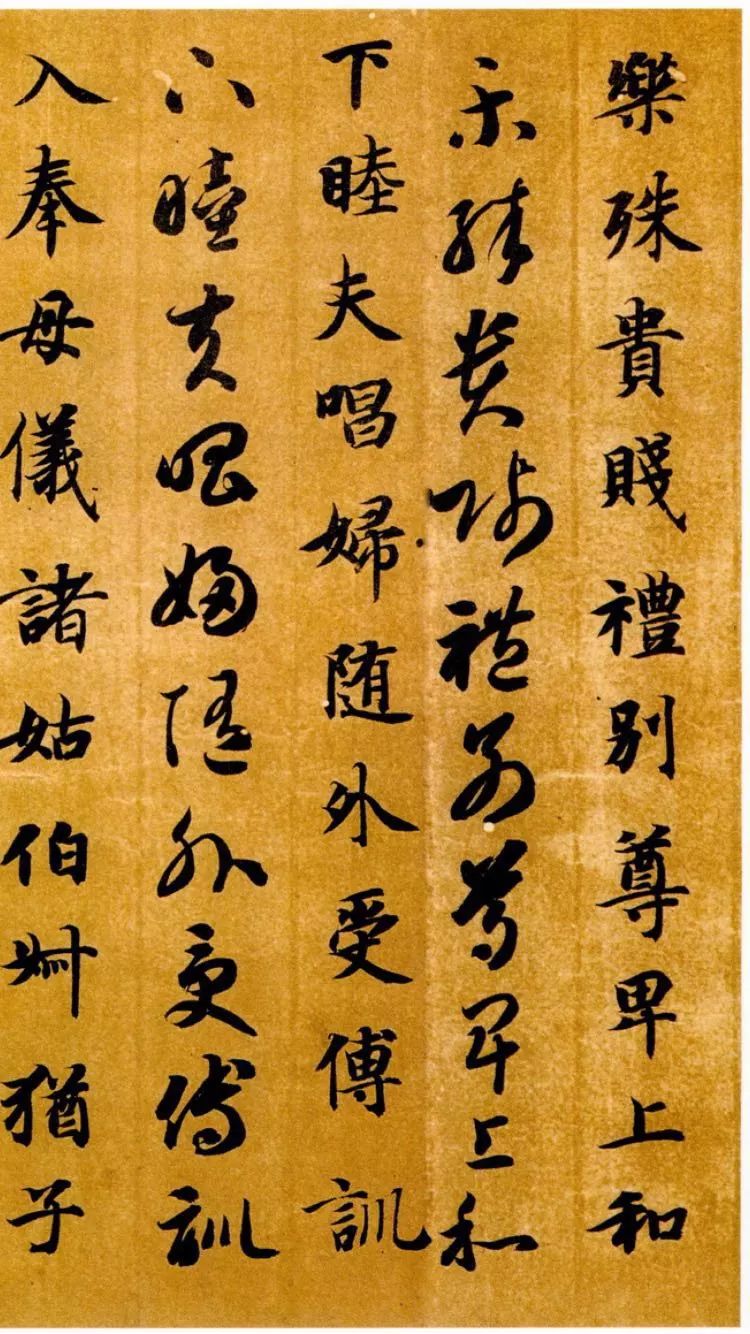 樂殊貴賤禮别尊卑上和
樂殊貴賤禮别尊卑上和
下睦夫唱婦随外受傅訓
下睦夫唱婦随外受傅訓
入奉母儀諸姑伯叔猶子